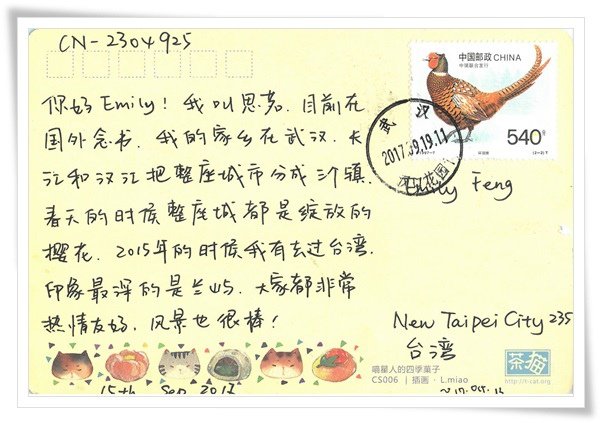 CN-2304925
中国邮政 CHINA
中瑞联合发行
540分
武汉
2017.09.19.11
你好Emily! 我叫思茗. 目前在
国外念书. 我的家乡在武汉. 长
江和汉江把整座城市分成三个镇.
春天的时候整座城都是绽放的
樱花. 2015年的时候我有去过台湾.
印象最深的是兰屿. 大家都非常
热情友好. 风景也很棒!
Emily Feng
New Taipei City 235
台湾
喵星人的四季菓子
CS006 | 插画 · L.miao
茶猫
http://t-cat.org
15th Sep 2017